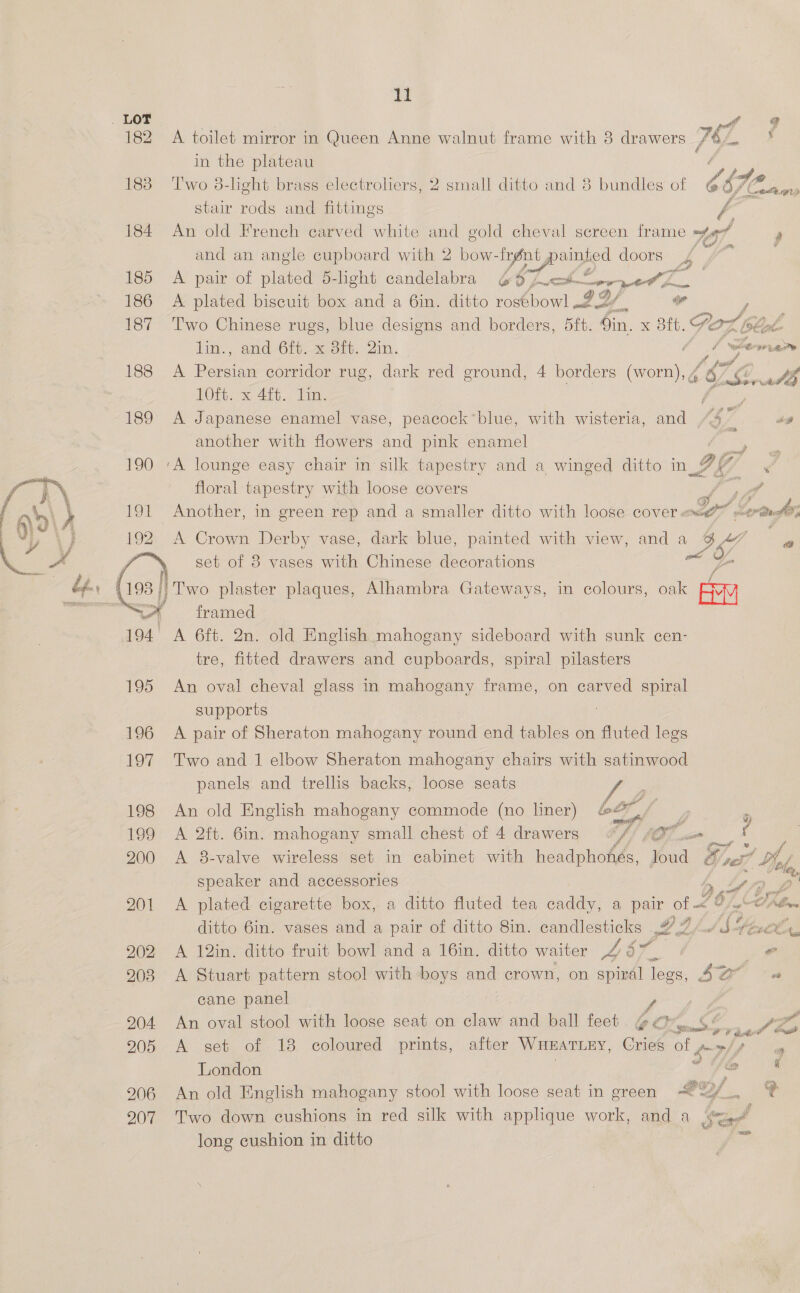 11
LOT
182 A toilet mirror in Queen Anne walnut frame with 3 drawers
in the plateau
183 Two 3-light brass electroliers, 2 small ditto and 3 bundles of
stair rods and fittings
184 An old French carved white and gold cheval screen frame
and an angle cupboard with 2 bow-front painted doors
185 A pair of plated 5-light candelabra
186 A plated biscuit box and a 6in. ditto rosebowl
187 Two Chinese rugs, blue designs and borders, 5ft. 9in. x 3ft.
1in., and 6ft. x 3ft. 2in.
188 A Persian corridor rug, dark red ground, 4 borders (worn),
10ft. x 4ft. 1in.
189 A Japanese enamel vase, peacock blue, with wisteria, and
another with flowers and pink enamel
190 A lounge easy chair in silk tapestry and a winged ditto in
floral tapestry with loose covers
191 Another, in green rep and a smaller ditto with loose cover
192 A Crown Derby vase, dark blue, painted with view, and a
set of 3 vases with Chinese decorations
193 Two plaster plaques, Alhambra Gateways, in colours, oak
framed
194 A 6ft. 2n. old English mahogany sideboard with sunk cen-
tre, fitted drawers and cupboards, spiral pilasters
195 An oval cheval glass in mahogany frame, on carved spiral
supports
196 A pair of Sheraton mahogany round end tables on fluted legs
197 Two and 1 elbow Sheraton mahogany chairs with satinwood
panels and trellis backs, loose seats
198 An old English mahogany commode (no liner)
199 A 2ft. 6in. mahogany small chest of 4 drawers
200 A 3-valve wireless set in cabinet with headphones, loud
speaker and accessories
201 A plated cigarette box, a ditto fluted tea caddy, a pair of
ditto 6in. vases and a pair of ditto 8in. candlesticks
202 A 12in. ditto fruit bowl and a 16in. ditto waiter
203 A Stuart pattern stool with boys and crown, on spiral legs,
cane panel
204 An oval stool with loose seat on claw and ball feet
205 A set of 13 coloured prints, after WHEATLEY, Cries of
London
206 An old English mahogany stool with loose seat in green
207 Two down cushions in red silk with applique work, and a
long cushion in ditto